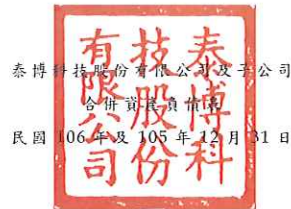 泰博科技股份有限公司及子公司
合併資產負債表
民國 106 年及 105 年 12 月 31 日
泰博科
技股份
有限公司